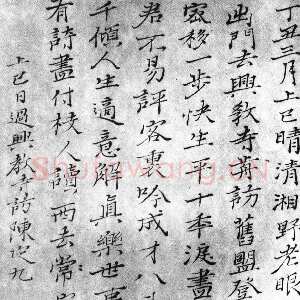 丁丑三月上巳晴清湘野老眼
出門去興教寺前訪舊盟登
客移一步快生平十年淚盡
君不易評客裏吟成才八
千傾人生適意解真樂世事
有詩盡付校人讀西去常客
上巳日過興教寺訪陳定九
Shufawang.CN